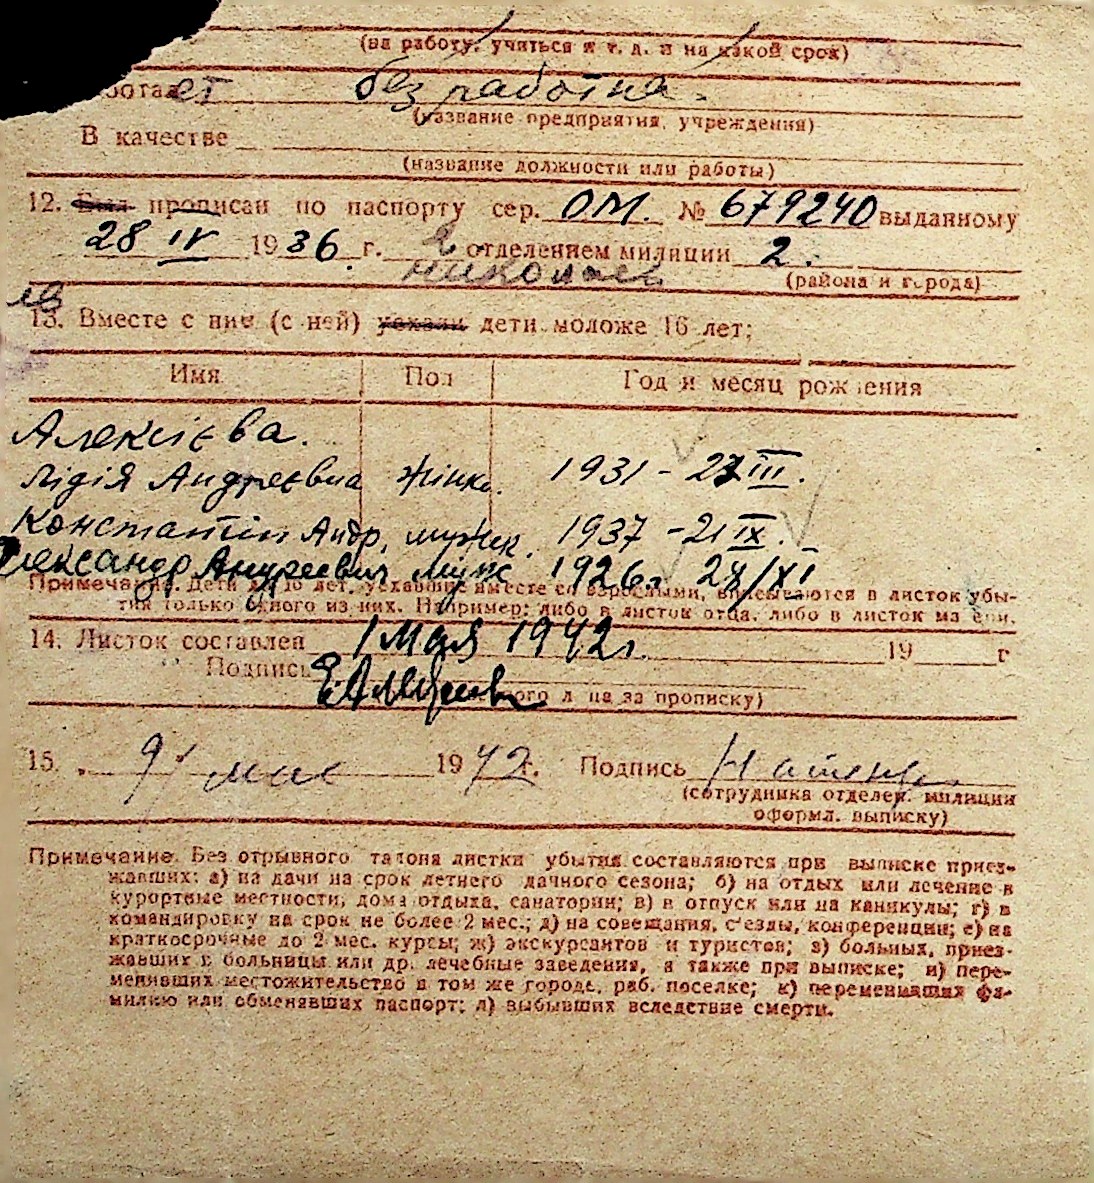 (на работу, учиться и т. д. и на какой срок)
ботает без работна.
(название предприятия, учреждения)
В качестве
(название должности или работы)
12. Был прописан по паспорту сер. ОМ. № 679240 выданному
28 IV 1936 г. 2 отделением милиции 2.
николаев
(района и города)
13. Вместе с ним (с ней) уехали дети моложе 16 лет;
Имя Пол Год и месяц рождения
Алексієва.
Лідія Андреевна жінка. 1931 - 27 III.
Константін Андр. мужск. 1937 - 21 IX.
Олександр Андреевич муж 1926г 24/XI
Примечание. Дети до 16 лет, уехавшие вместе со взрослыми, вписываются в листок убы-
тия только одного из них. Например: либо в листок отца, либо в листок матери.
14. Листок составлен 1 мая 1942г. 19 г
Подпись
ного лица за прописку)
15. 9 мая 1942г. Подпись
(сотрудника отделен. милиции
оформл. выписку)
Примечание. Без отрывного талона листки убытия составляются при выписке приез-
жавших: а) на дачи на срок летнего дачного сезона; б) на отдых или лечение в
курортные местности, дома отдыха, санатории; в) в отпуск или на каникулы; г) в
командировку на срок не более 2 мес.; д) на совещания, с'езды, конференции; е) на
краткосрочные до 2 мес. курсы; ж) экскурсантов и туристов; з) больных, приез-
жавших в больницы или др. лечебные заведения, а также при выписке; и) пере-
менявших местожительство в том же городе, раб. поселке; к) переменивших фа-
милию или обменявших паспорт; л) выбывших вследствие смерти.